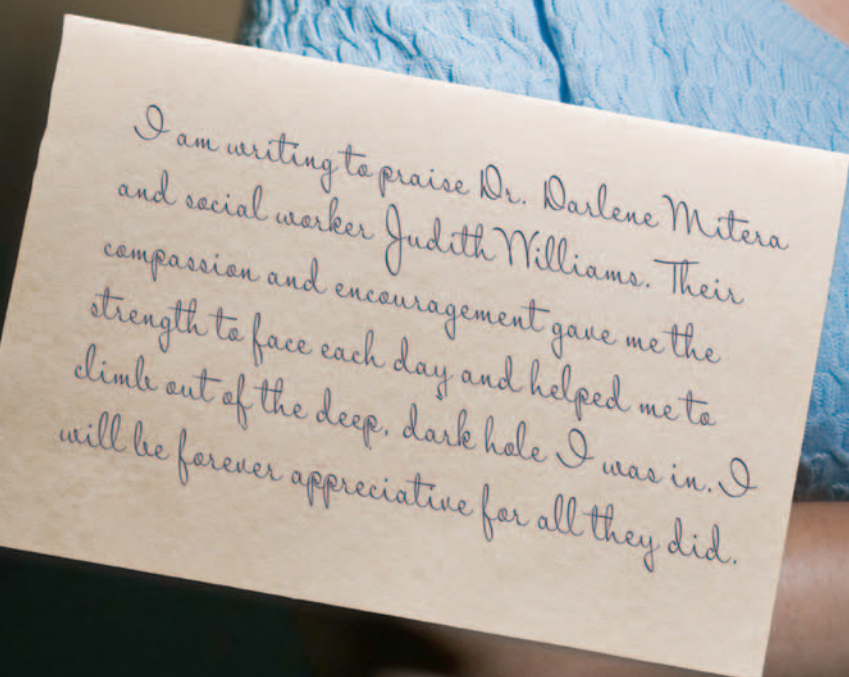 I am writing to praise Dr. Darlene Mitera
and social worker Judith Williams. Their
compassion and encouragement gave me the
strength to face each day and helped me to
climb out of the deep, dark hole I was in. I
will be forever appreciative for all they did.